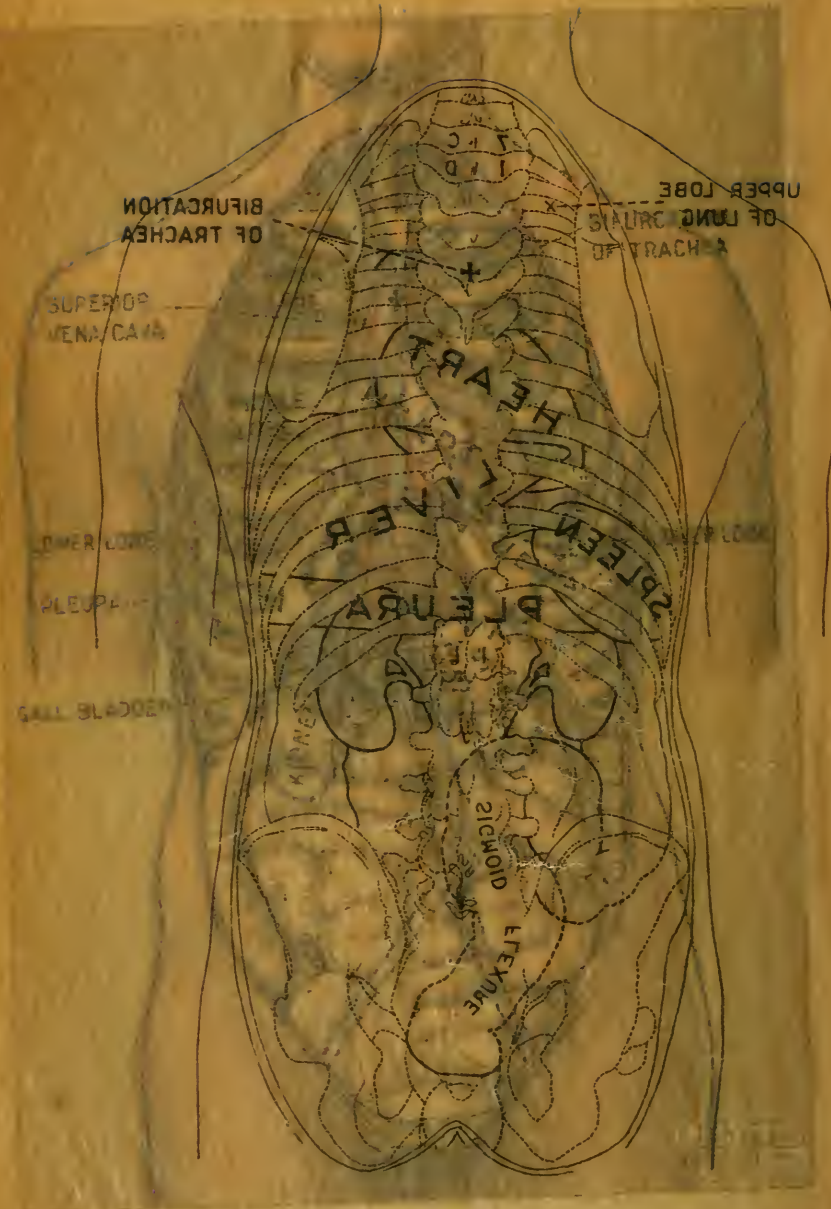 7 C
1 D
BIFURCATION
OF TRACHEA
UPPER LOBE
OF LUNG
BIFURC
OF TRACHEA
SUPERIOR
VENA CAVA
HEART
LIVER
SPLEEN
LOWER LOBE
PLEURA
PLEURA
GALL BLADDER
KIDNEY
SIGMOID
FLEXURE